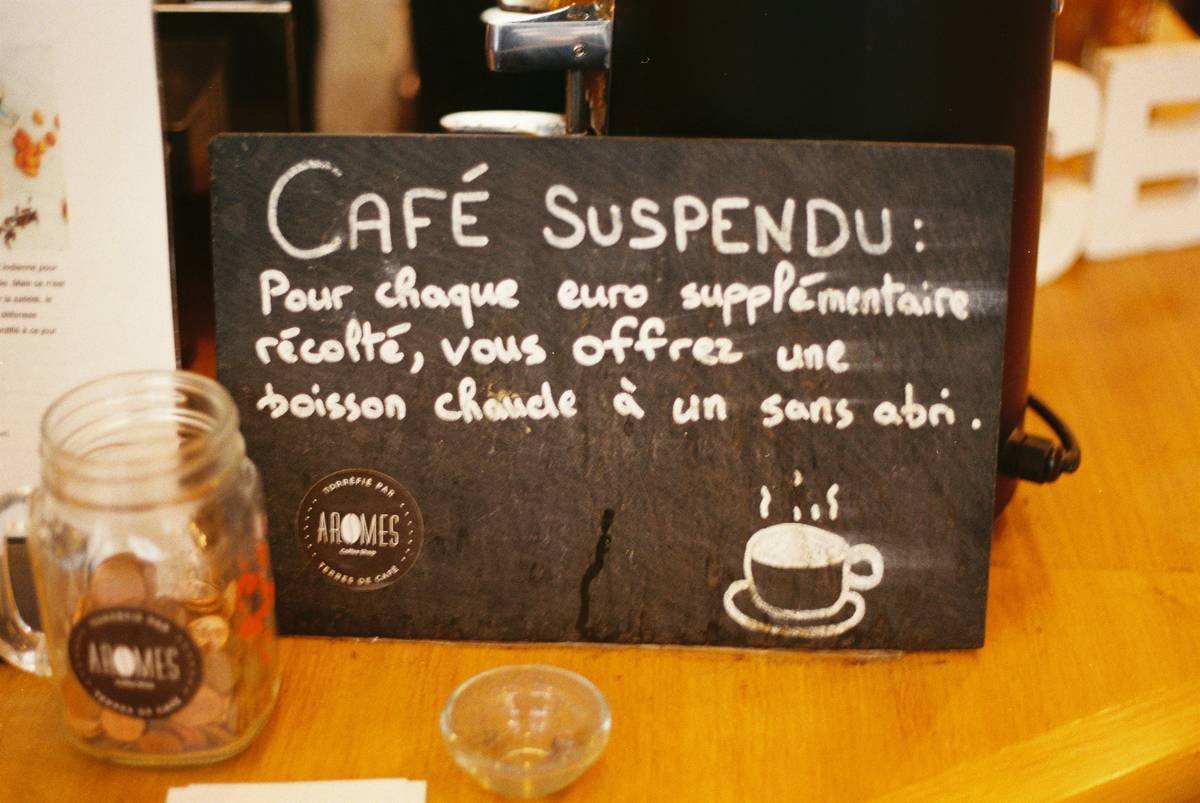 CAFÉ SUSPENDU :
Pour chaque euro supplémentaire
récolté, vous offrez une
boisson chaude à un sans abri.
TORRÉFIÉ PAR
AROMES
Coffee Shop
TERRES DE CAFÉ
TORRÉFIÉ PAR
AROMES
TERRES DE CAFÉ
indienne pour
Mais ce n'est
la satiété, le